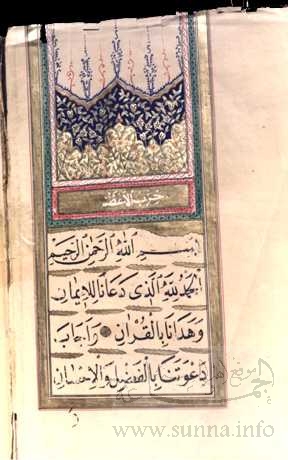 حزب الاعظم
بسم الله الرحمن الرحيم
الحمد لله الذي دعانا للإيمان
وهدانا بالقرآن واجاب
دعوتنا بالفضل والإحسان
موقع
www.sunna.info